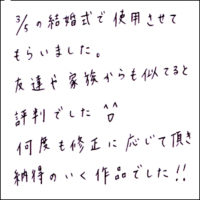 3/5の結婚式で使用させて
もらいました。
友達や家族からも似てると
評判でした ^^
何度も修正に応じて頂き
納得のいく作品でした!!